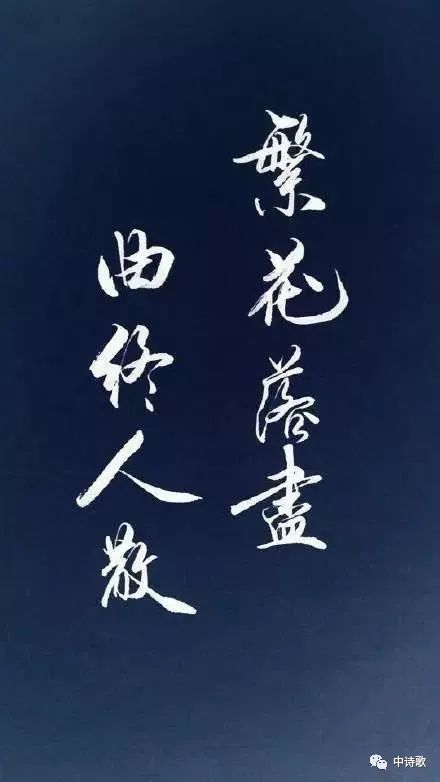 繁花落盡
曲终人散
中诗歌